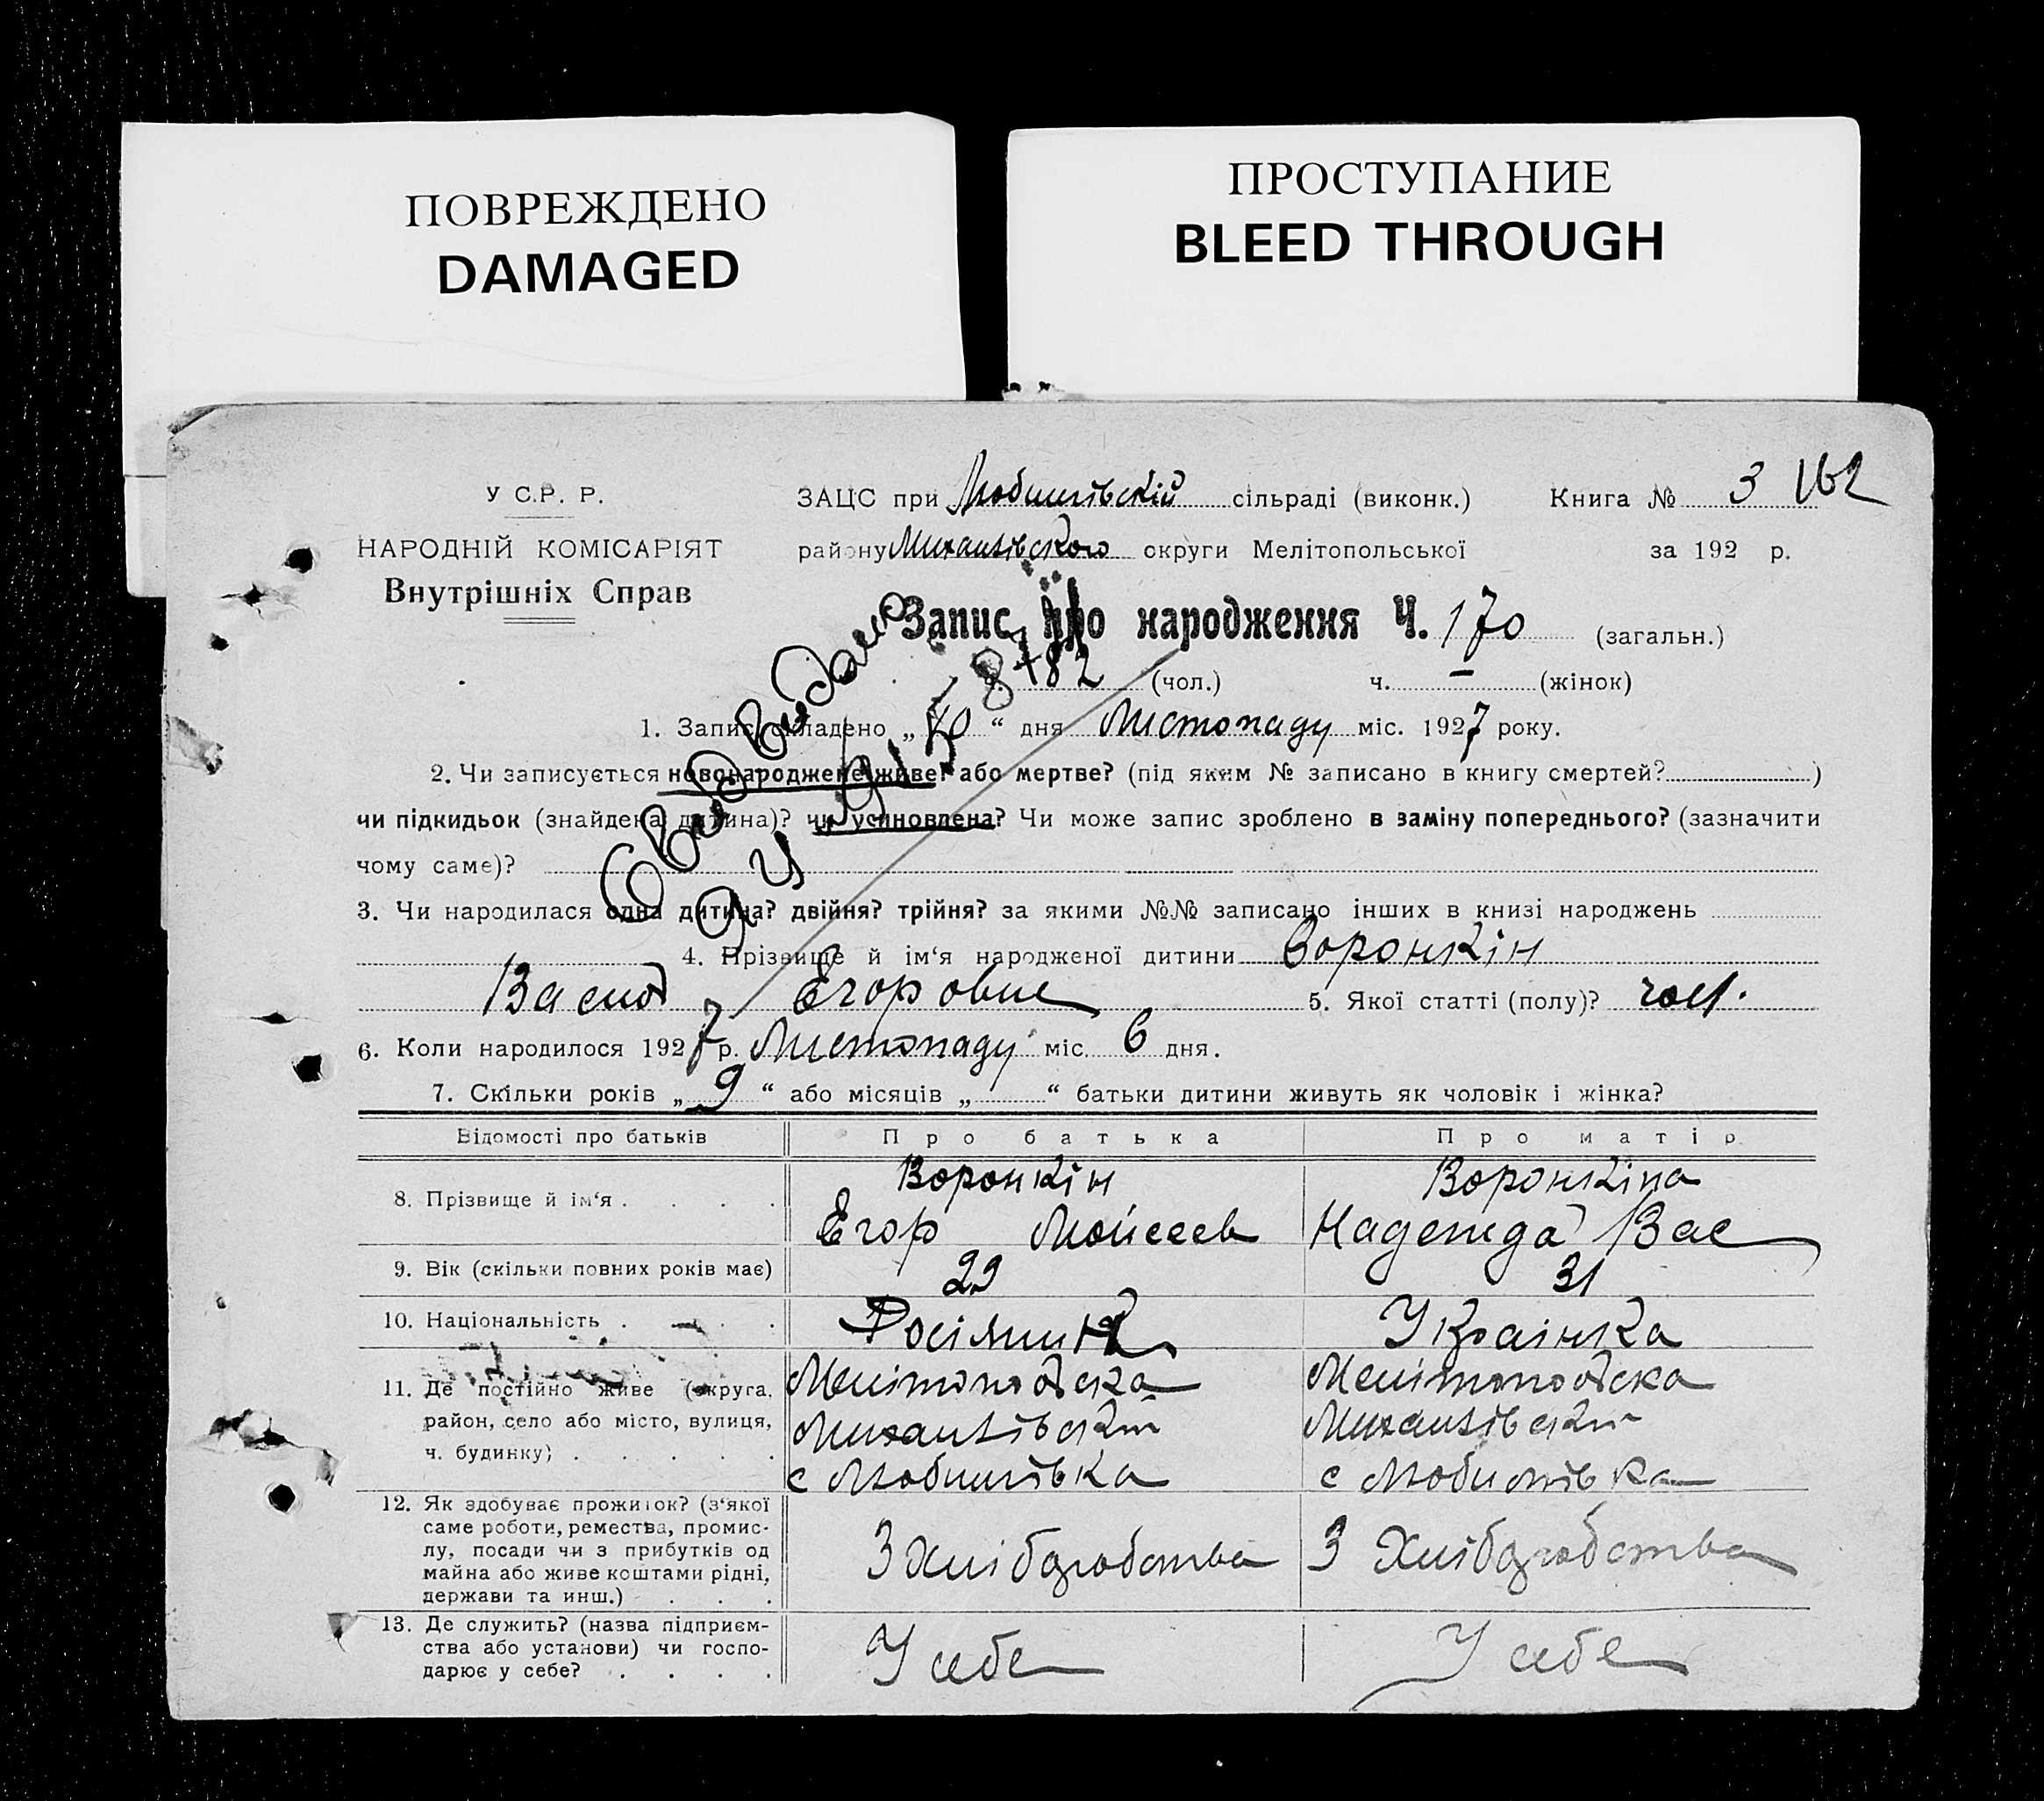 ПОВРЕЖДЕНО
DAMAGED
ПРОСТУПАНИЕ
BLEED THROUGH
У С.Р. Р.
НАРОДНІЙ КОМІСАРІЯТ
Внутрішніх Справ
ЗАЦС при Любимівській сільраді (виконк.) Книга № 3 162
району Михайлівського округи Мелітопольської за 192 р.
Запис про народження Ч. 170 (загальн.)
82 (чол.) ч. – (жінок)
1. Запис складено „10“ дня Листопаду міс. 1927 року.
2. Чи записується новонароджене живе? або мертве? (під яким № записано в книгу смертей? )
чи підкидьок (знайдена дитина)? чи усиновлена? Чи може запис зроблено в заміну попереднього? (зазначити
чому саме)?
Свид видано
3. Чи народилася одна дитина? двійня? трійня? за якими №№ записано інших в книзі народжень
4. Прізвище й ім‘я народженої дитини Воронкін
Васил Егорович 5. Якої статті (полу)? чол.
6. Коли народилося 1927 р. Листопаду міс. 6 дня.
7. Скільки років „9“ або місяців „ “ батьки дитини живуть як чоловік і жінка?
Відомості про батьків Про батька Про матір
8. Прізвище й ім‘я . . . . Воронкін Егор Мойсеев Воронкіна Надежда Вас
9. Вік (скільки повних років має) 29 31
10. Національність . . . . Росіянин Українка
11. Де постійно живе (округа, район, село або місто, вулиця, ч. будинку) . . . . . Мелітополська Михайлівский с Любимівка Мелітополська Михайлівский с Любимівка
12. Як здобуває прожиток? (з‘якої саме роботи, ремества, промислу, посади чи з прибутків од майна або живе коштами рідні, держави та инш.) . . . З хліборобства З хліборобства
13. Де служить? (назва підприємства або установи) чи господарює у себе? . . . . У себе У себе